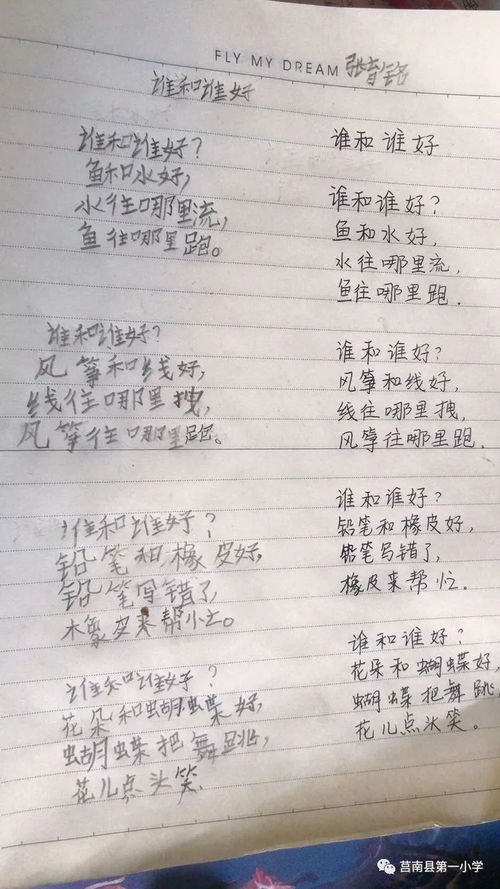 FLY MY DREAM
谁和谁好
谁和谁好?
鱼和水好,
水往哪里流,
鱼往哪里跑。
谁和谁好?
风筝和线好,
线往哪里拽,
风筝往哪里跑。
谁和谁好?
铅笔和橡皮好,
铅笔写错了,
橡皮来帮忙。
谁和谁好?
花朵和蝴蝶好,
蝴蝶把舞跳,
花儿点头笑.
谁和谁好
谁和谁好?
鱼和水好,
水往哪里流,
鱼往哪里跑.
谁和谁好?
风筝和线好,
线往哪里拽,
风筝往哪里跑.
谁和谁好?
铅笔和橡皮好,
铅笔写错了,
橡皮来帮忙.
谁和谁好?
花朵和蝴蝶好,
蝴蝶把舞跳
花儿点头笑。
莒南县第一小学